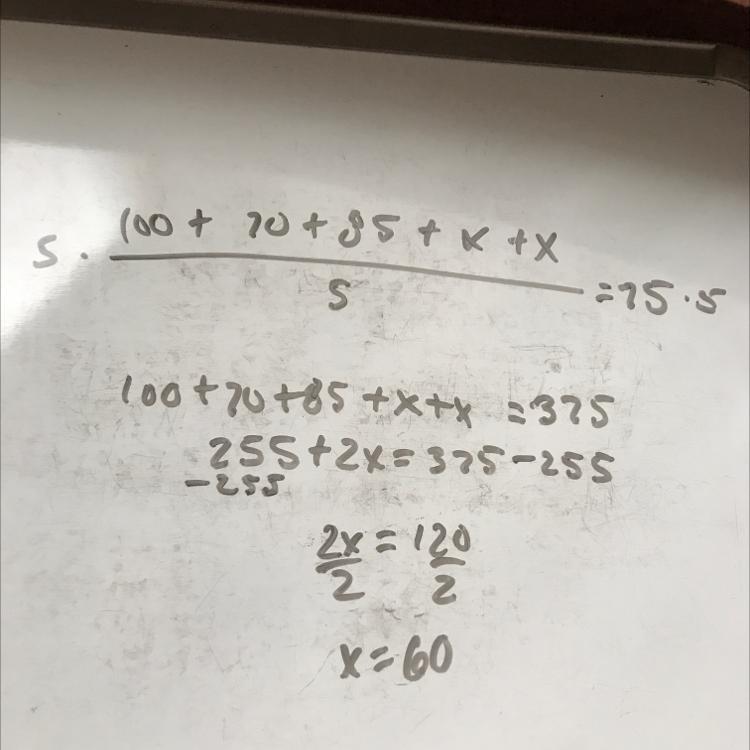 5 · (100 + 70 + 85 + x + x) / 5 = 75 · 5
100 + 70 + 85 + x + x = 375
255 + 2x = 375 - 255
-255
2x/2 = 120/2
x = 60